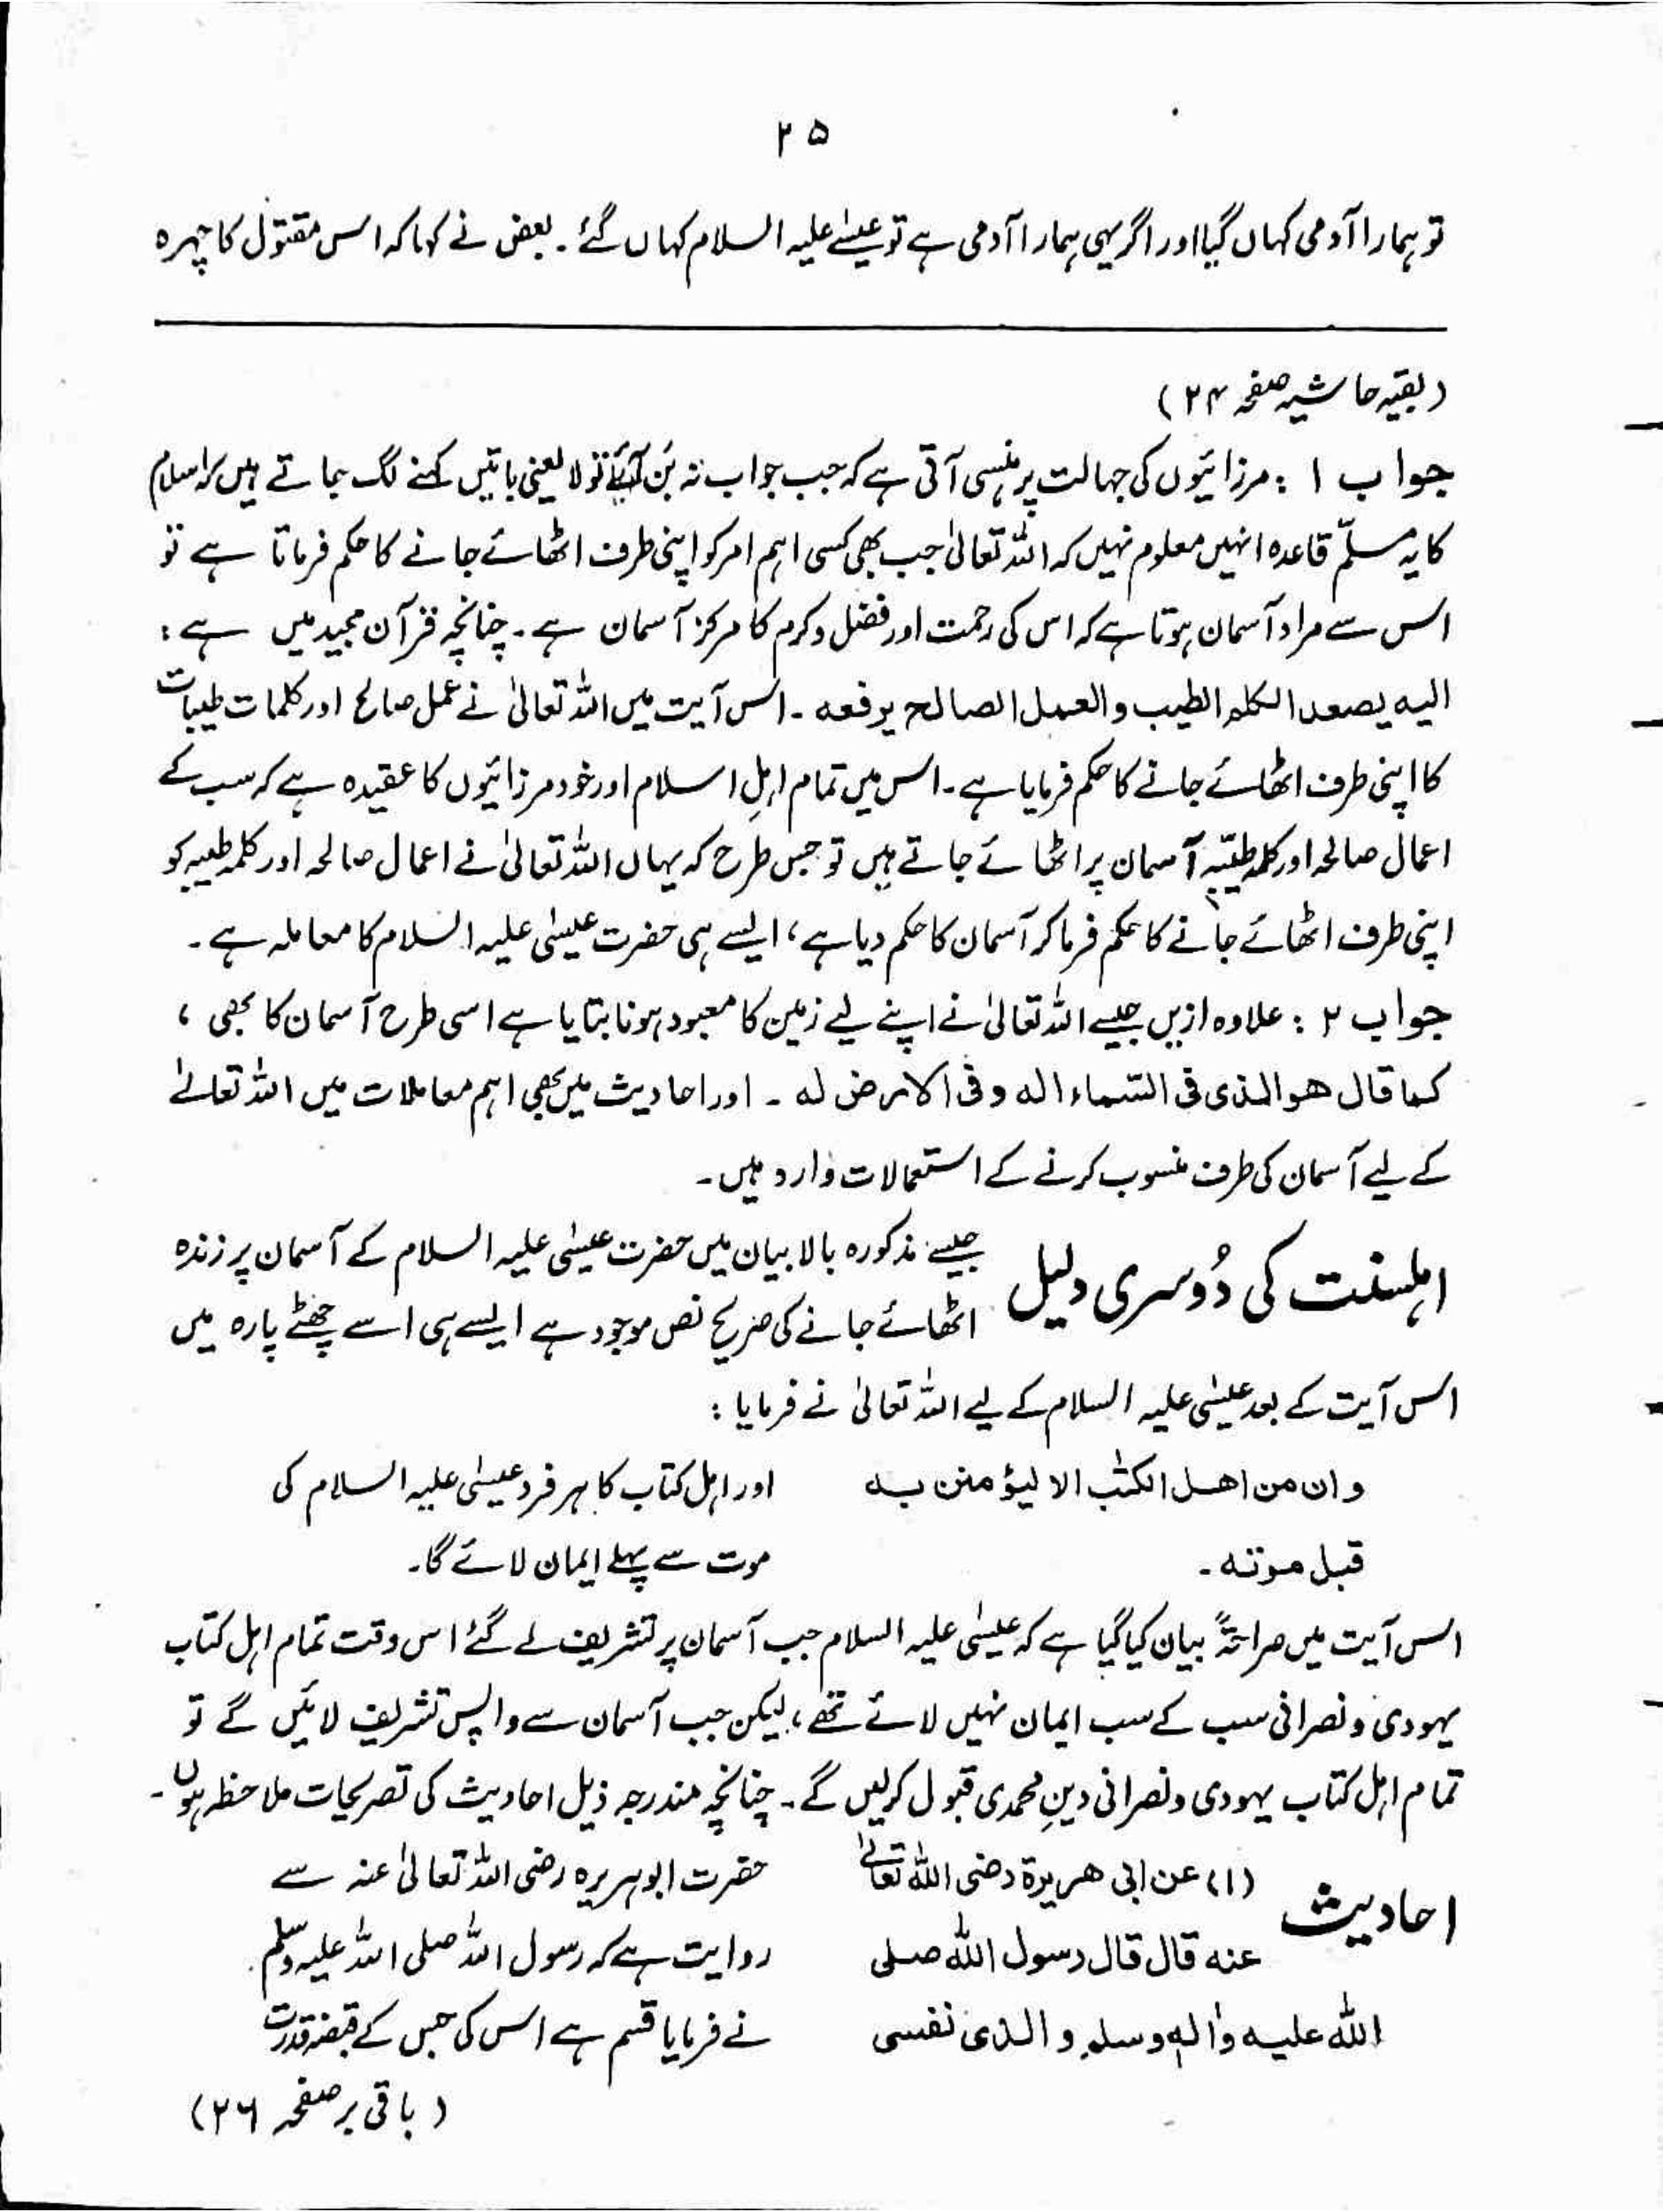 ۲۵
تو ہمارا آدمی کہاں گیا اور اگر یہی ہمارا آدمی ہے تو عیسےٰ علیہ السلام کہاں گئے۔ بعض نے کہا کہ اس مقتول کا چہرہ
(بقیہ حاشیہ صفحہ ۲۴)
جواب ۱ : مرزائیوں کی جہالت پر ہنسی آتی ہے کہ جب جواب نہ بَن آئے تو لا یعنی باتیں کہنے لگ جاتے ہیں کہ اسلام
کا یہ مسلّم قاعدہ انہیں معلوم نہیں کہ اللہ تعالیٰ جب بھی کسی اہم امر کو اپنی طرف اٹھائے جانے کا حکم فرماتا ہے تو
اس سے مراد آسمان ہوتا ہے کہ اس کی رحمت اور فضل و کرم کا مرکز آسمان ہے۔ چنانچہ قرآن مجید میں ہے :
الیہ یصعد الکلم الطیب والعمل الصالح یرفعہ ۔ اس آیت میں اللہ تعالیٰ نے عمل صالح اور کلمات طیبات
کا اپنی طرف اٹھائے جانے کا حکم فرمایا ہے۔ اس میں تمام اہلِ اسلام اور خود مرزائیوں کا عقیدہ ہے کہ سب کے
اعمال صالحہ اور کلمہ طیّبہ آسمان پر اٹھائے جاتے ہیں تو جس طرح کہ یہاں اللہ تعالیٰ نے اعمال صالحہ اور کلمہ طیبہ کو
اپنی طرف اٹھائے جانے کا حکم فرما کر آسمان کا حکم دیا ہے، ایسے ہی حضرت عیسیٰ علیہ السلام کا معاملہ ہے۔
جواب ۲ : علاوہ ازیں جیسے اللہ تعالیٰ نے اپنے لیے زمین کا معبود ہونا بتایا ہے اسی طرح آسمان کا بھی ،
کما قال ھو الذی فی السّماء الہ وفی الارض لہ ۔ اور احادیث میں بھی اہم معاملات میں اللہ تعالےٰ
کے لیے آسمان کی طرف منسوب کرنے کے استعمالات وارد ہیں۔
اہلسنت کی دُوسری دلیل جیسے مذکورہ بالا بیان میں حضرت عیسیٰ علیہ السلام کے آسمان پر زندہ
اٹھائے جانے کی صریح نص موجود ہے ایسے ہی اسے چھٹے پارہ میں
اس آیت کے بعد عیسیٰ علیہ السلام کے لیے اللہ تعالیٰ نے فرمایا :
وان من اھل الکتٰب الا لیؤمنن بہ اور اہل کتاب کا ہر فرد عیسیٰ علیہ السلام کی
قبل موتہ ۔ موت سے پہلے ایمان لائے گا۔
اس آیت میں صراحۃً بیان کیا گیا ہے کہ عیسیٰ علیہ السلام جب آسمان پر تشریف لے گئے اس وقت تمام اہل کتاب
یہودی و نصرانی سب کے سب ایمان نہیں لائے تھے، لیکن جب آسمان سے واپس تشریف لائیں گے تو
تمام اہل کتاب یہودی و نصرانی دینِ محمدی قبول کرلیں گے۔ چنانچہ مندرجہ ذیل احادیث کی تصریحات ملاحظہ ہوں۔
احادیث (۱) عن ابی ھریرۃ رضی اللہ تعالےٰ حضرت ابوہریرہ رضی اللہ تعالیٰ عنہ سے
عنہ قال قال رسول اللہ صلی روایت ہے کہ رسول اللہ صلی اللہ علیہ وسلم
اللہ علیہ واٰلہٖ وسلم و الذی نفسی نے فرمایا قسم ہے اس کی جس کے قبضۂ قدرت
(باقی بر صفحہ ۲۶)